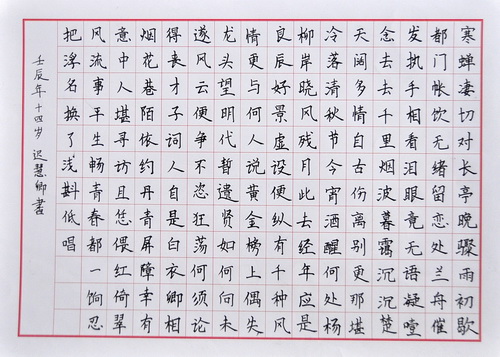 寒蝉凄切对长亭晚骤雨初歇
都门帐饮无绪留恋处兰舟催
发执手相看泪眼竟无语凝噎
念去去千里烟波暮霭沉沉楚
天阔多情自古伤离别更那堪
冷落清秋节今宵酒醒何处杨
柳岸晓风残月此去经年应是
良辰好景虚设便纵有千种风
情更与何人说黄金榜上偶失
龙头望明代暂遗贤如何向未
遂风云便争不恣狂荡何须论
得丧才子词人自是白衣卿相
烟花巷陌依约丹青屏障幸有
意中人堪寻访且恁偎红倚翠
风流事平生畅青春都一饷忍
把浮名换了浅斟低唱
壬辰年十四岁 迟慧卿书